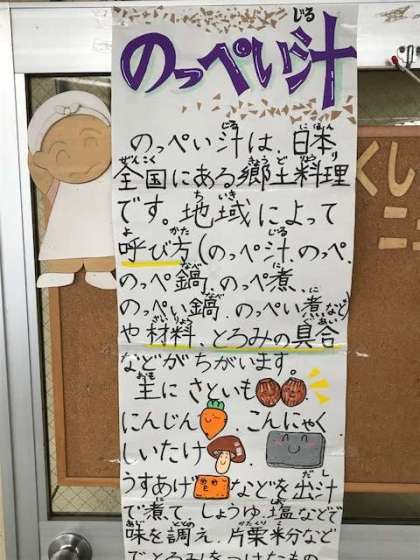 のっぺい汁
のっぺい汁は、日本
全国にある郷土料理
です。地域によって
呼び方(のっぺ汁、のっぺ、
のっぺ鍋、のっぺ煮、
のっぺい鍋、のっぺい煮など)
や材料、とろみの具合
などがちがいます。
主にさといも
にんじん、こんにゃく、
しいたけ
うすあげなどを出汁
で煮て、しょうゆ、塩などで
味を調え、片栗粉など
でとろみをつけたもの